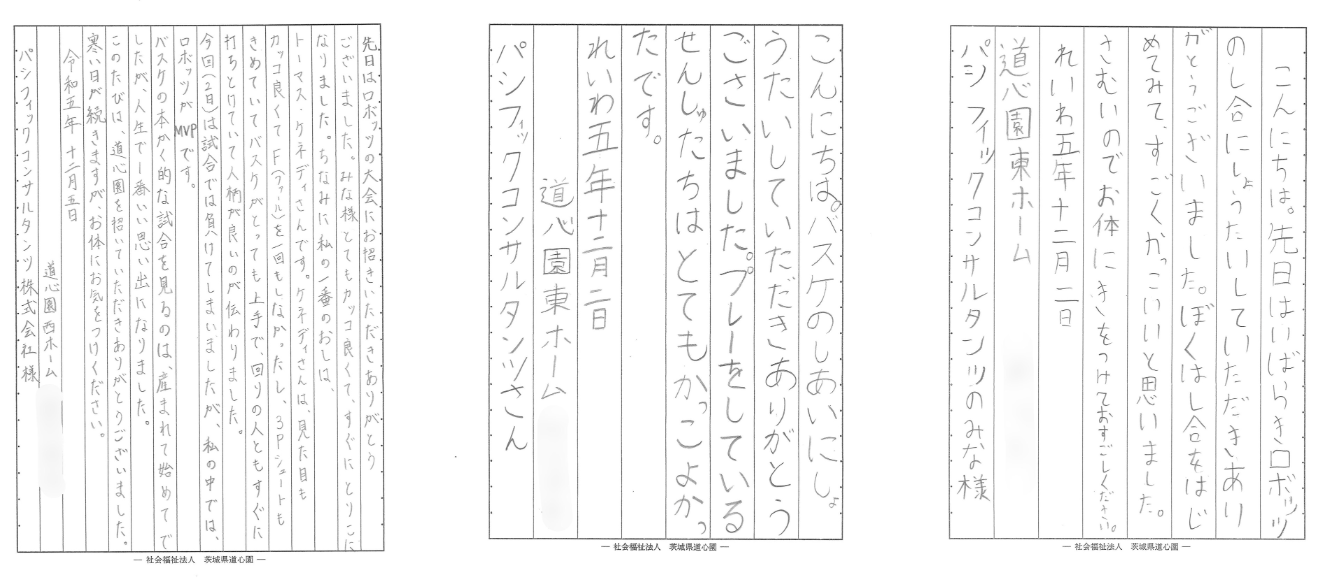 先日はロボッツの大会にお招きいただきありがとう
ございました。みな様とてもカッコ良くて、すぐにとりこに
なりました。ちなみに私の一番のおしは、
トーマス・ケネディさんです。ケネディさんは、見た目も
カッコ良くてF(ファール)を一回もしなかったし、3Pシュートも
きめていてバスケがとっても上手で、回りの人ともすぐに
打ちとけていて人柄が良いのが伝わりました。
今回(2日)は試合では負けてしまいましたが、私の中では、
ロボッツがMVPです。
バスケの本かく的な試合を見るのは、産まれて始めてで
したが、人生で一番いい思い出になりました。
このたびは、道心園を招いていただきありがとうございました。
寒い日が続きますが、お体にお気をつけください。
令和五年 十二月五日
道心園西ホーム
パシフィックコンサルタンツ株式会社様
― 社会福祉法人 茨城県道心園 ―
こんにちは。バスケのしあいにしょ
うたいしていただきありがとう
ございました。プレーをしている
せんしゅたちはとてもかっこよかっ
たです。
れいわ五年十二月二日
道心園東ホーム
パシフィックコンサルタンツさん
― 社会福祉法人 茨城県道心園 ―
こんにちは。先日はいばらきロボッツ
のし合にしょうたいしていただきあり
がとうございました。ぼくはし合をはじ
めてみて、すごくかっこいいと思いました。
さむいのでお体にきをつけておすごしください。
れいわ五年十二月二日
道心園東ホーム
パシフィックコンサルタンツのみな様
― 社会福祉法人 茨城県道心園 ―